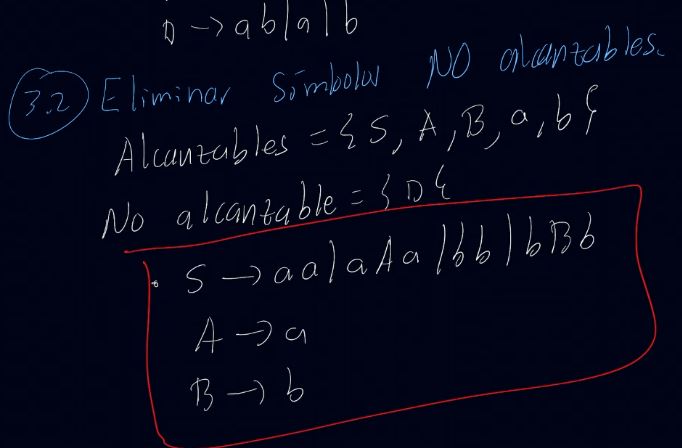 D → ab|a|b
3.2 Eliminar Símbolos NO alcanzables.
Alcanzables = { S, A, B, a, b }
No alcanzable = { D }
S → aa|aAa|bb|bBb
A → a
B → b